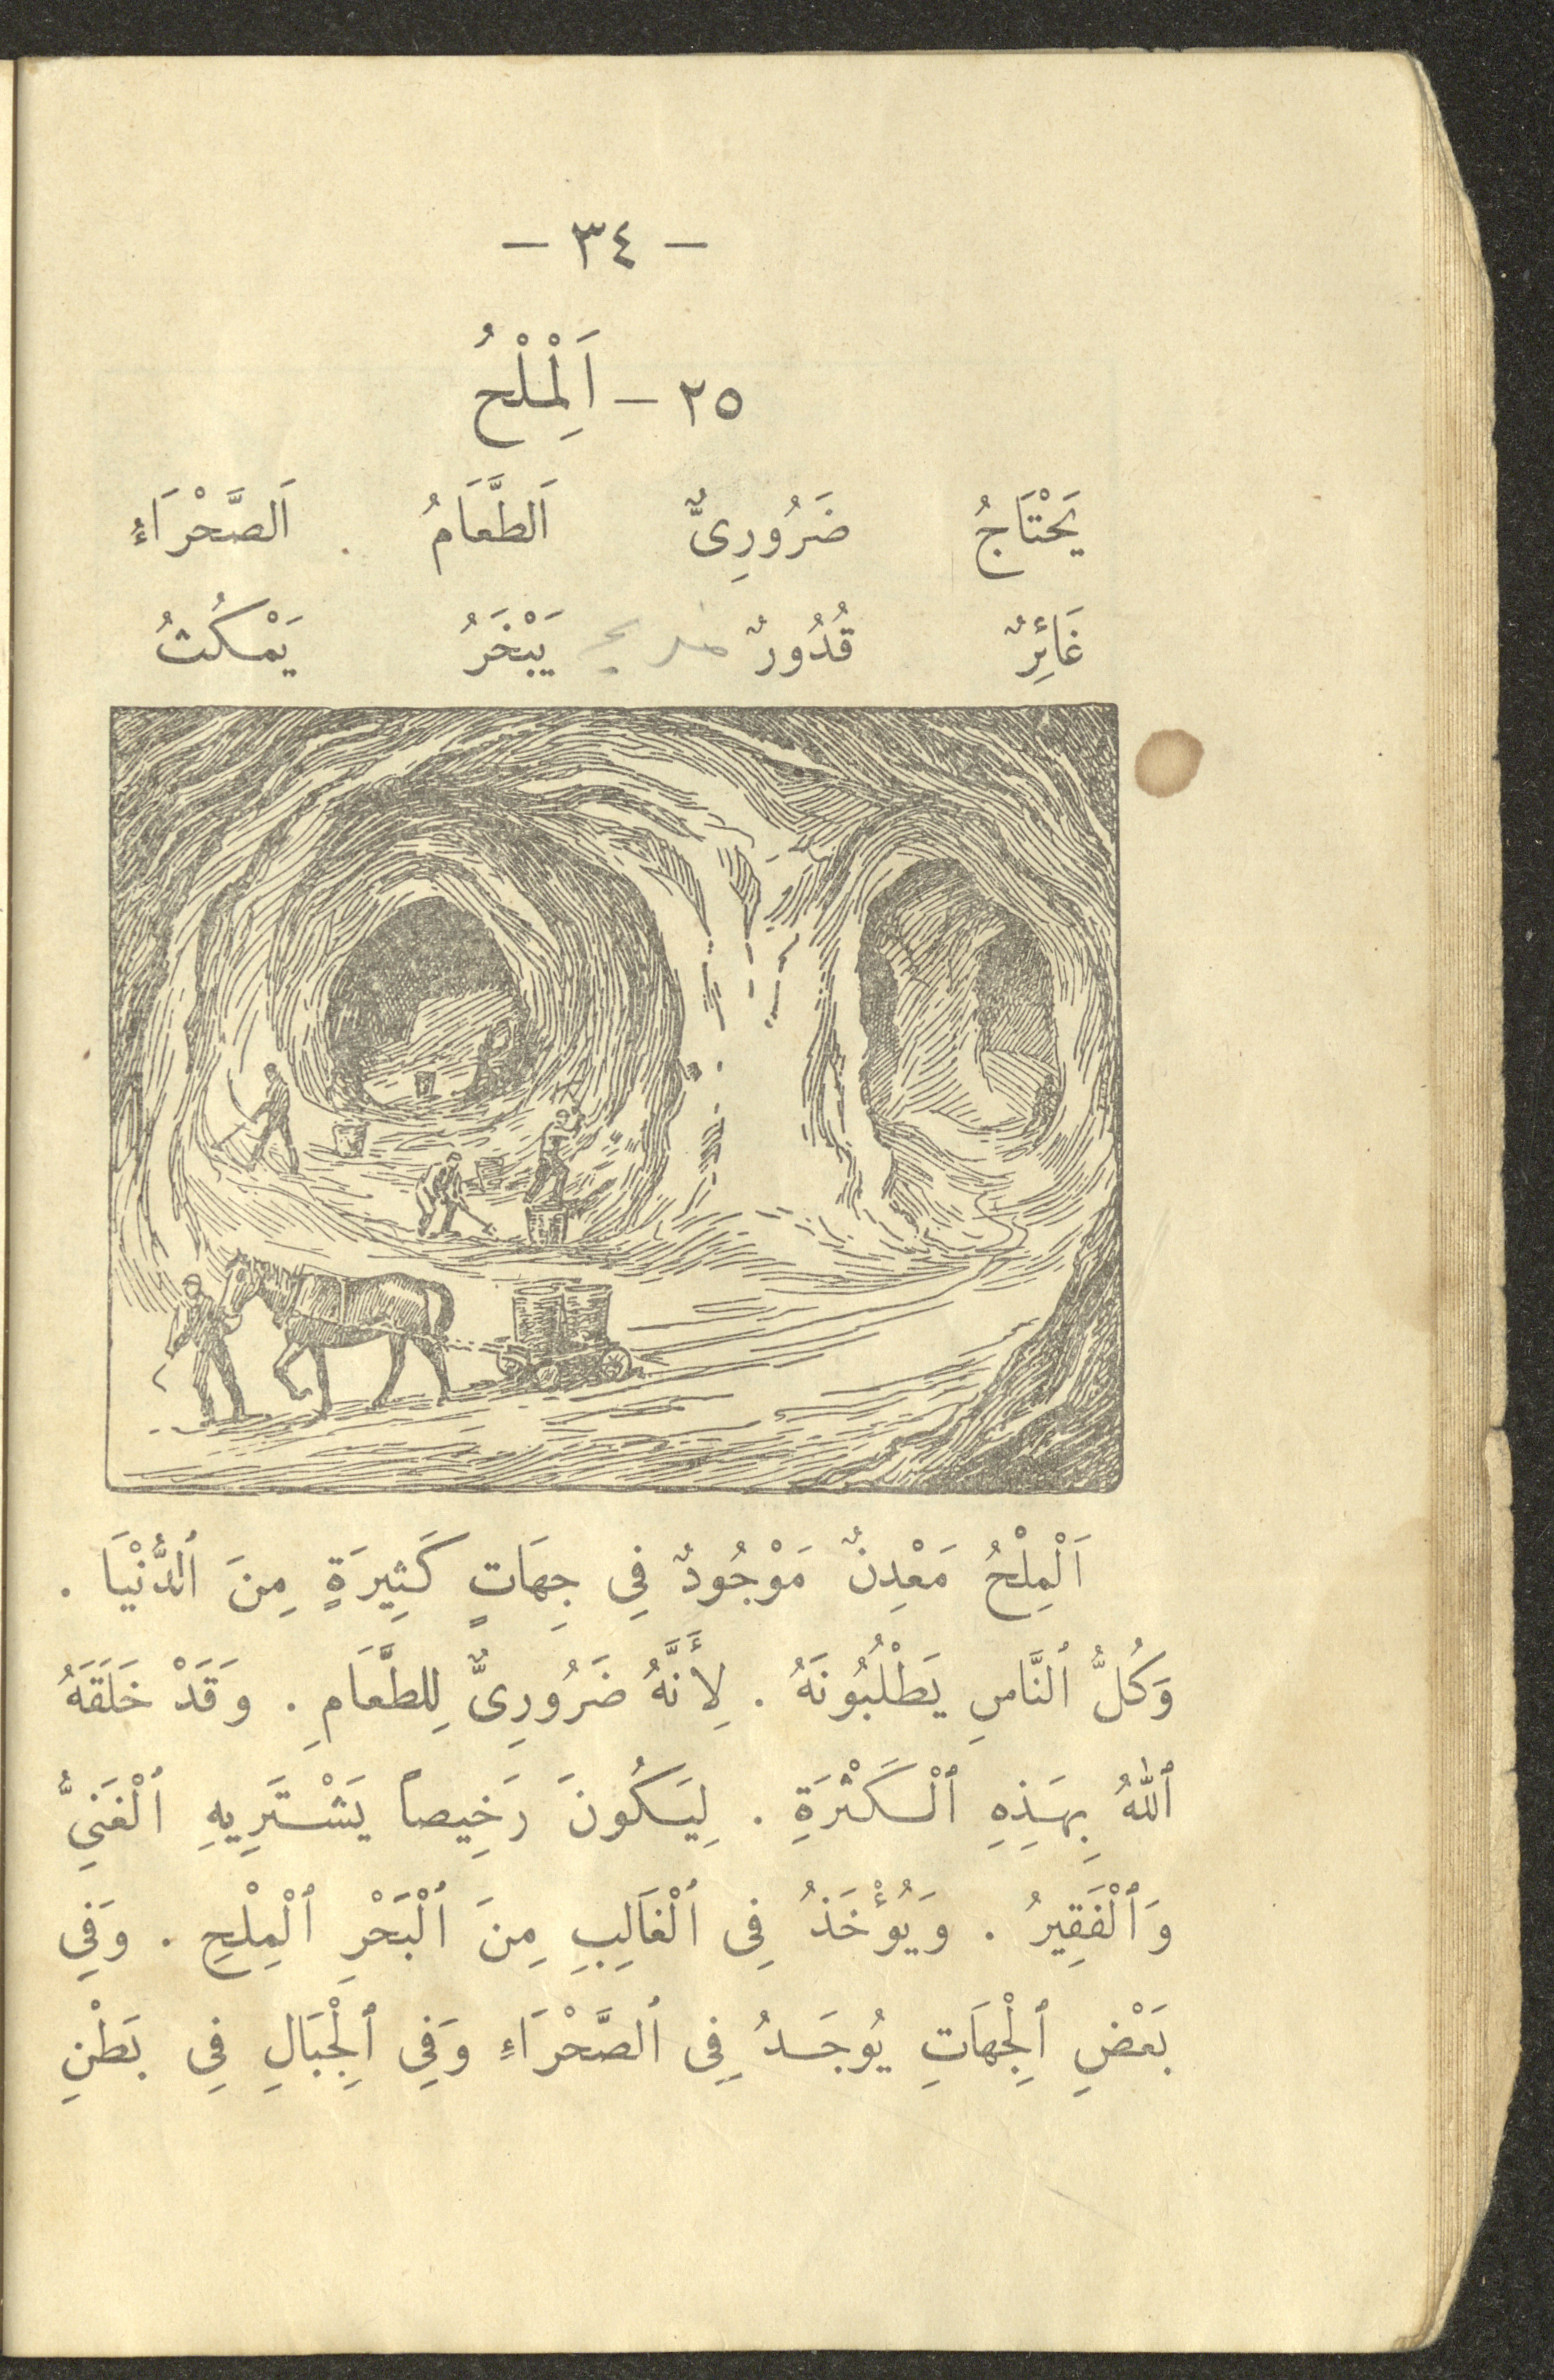 – ٣٤ –
٢٥ – اَلْمِلْحُ
يَحْتَاجُ ضَرُورِىٌّ اَلطَّعَامُ اَلصَّحْرَاءُ
غَائِرٌ قُدُورٌ يَبْخَرُ يَمْكُثُ
اَلْمِلْحُ مَعْدِنٌ مَوْجُودٌ فِى جِهَاتٍ كَثِيرَةٍ مِنَ ٱلدُّنْيَا .
وَكُلُّ ٱلنَّاسِ يَطْلُبُونَهُ . لِأَنَّهُ ضَرُورِىٌّ لِلطَّعَامِ . وَقَدْ خَلَقَهُ
ٱللهُ بِهَذِهِ ٱلْكَثْرَةِ . لِيَكُونَ رَخِيصاً يَشْتَرِيهِ ٱلْغَنِىُّ
وَٱلْفَقِيرُ . وَيُؤْخَذُ فِى ٱلْغَالِبِ مِنَ ٱلْبَحْرِ ٱلْمِلْحِ . وَفِى
بَعْضِ ٱلْجِهَاتِ يُوجَدُ فِى ٱلصَّحْرَاءِ وَفِى ٱلْجِبَالِ فِى بَطْنِ